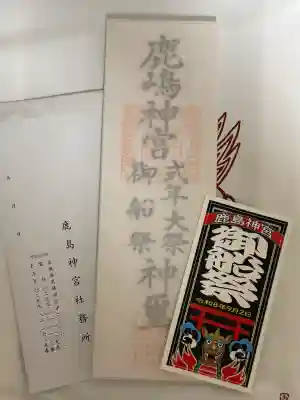 鹿嶋神宮
式年大祭
御船祭
神璽
月
日
鹿島神宮社務所
鹿島神宮
御船祭
令和8年9月2日